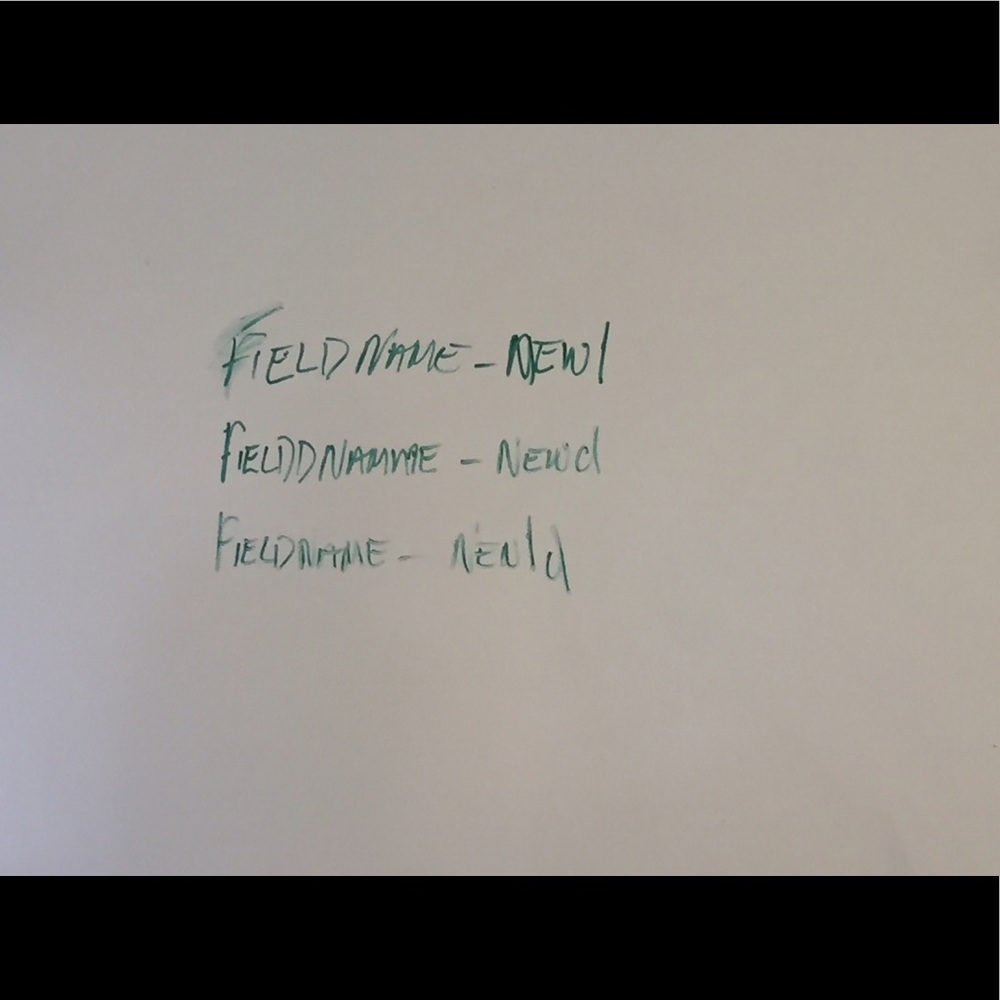 FIELDNAME-NEW1
FIELDDNAMME - NEWd
FIELDNAME - NEN1d